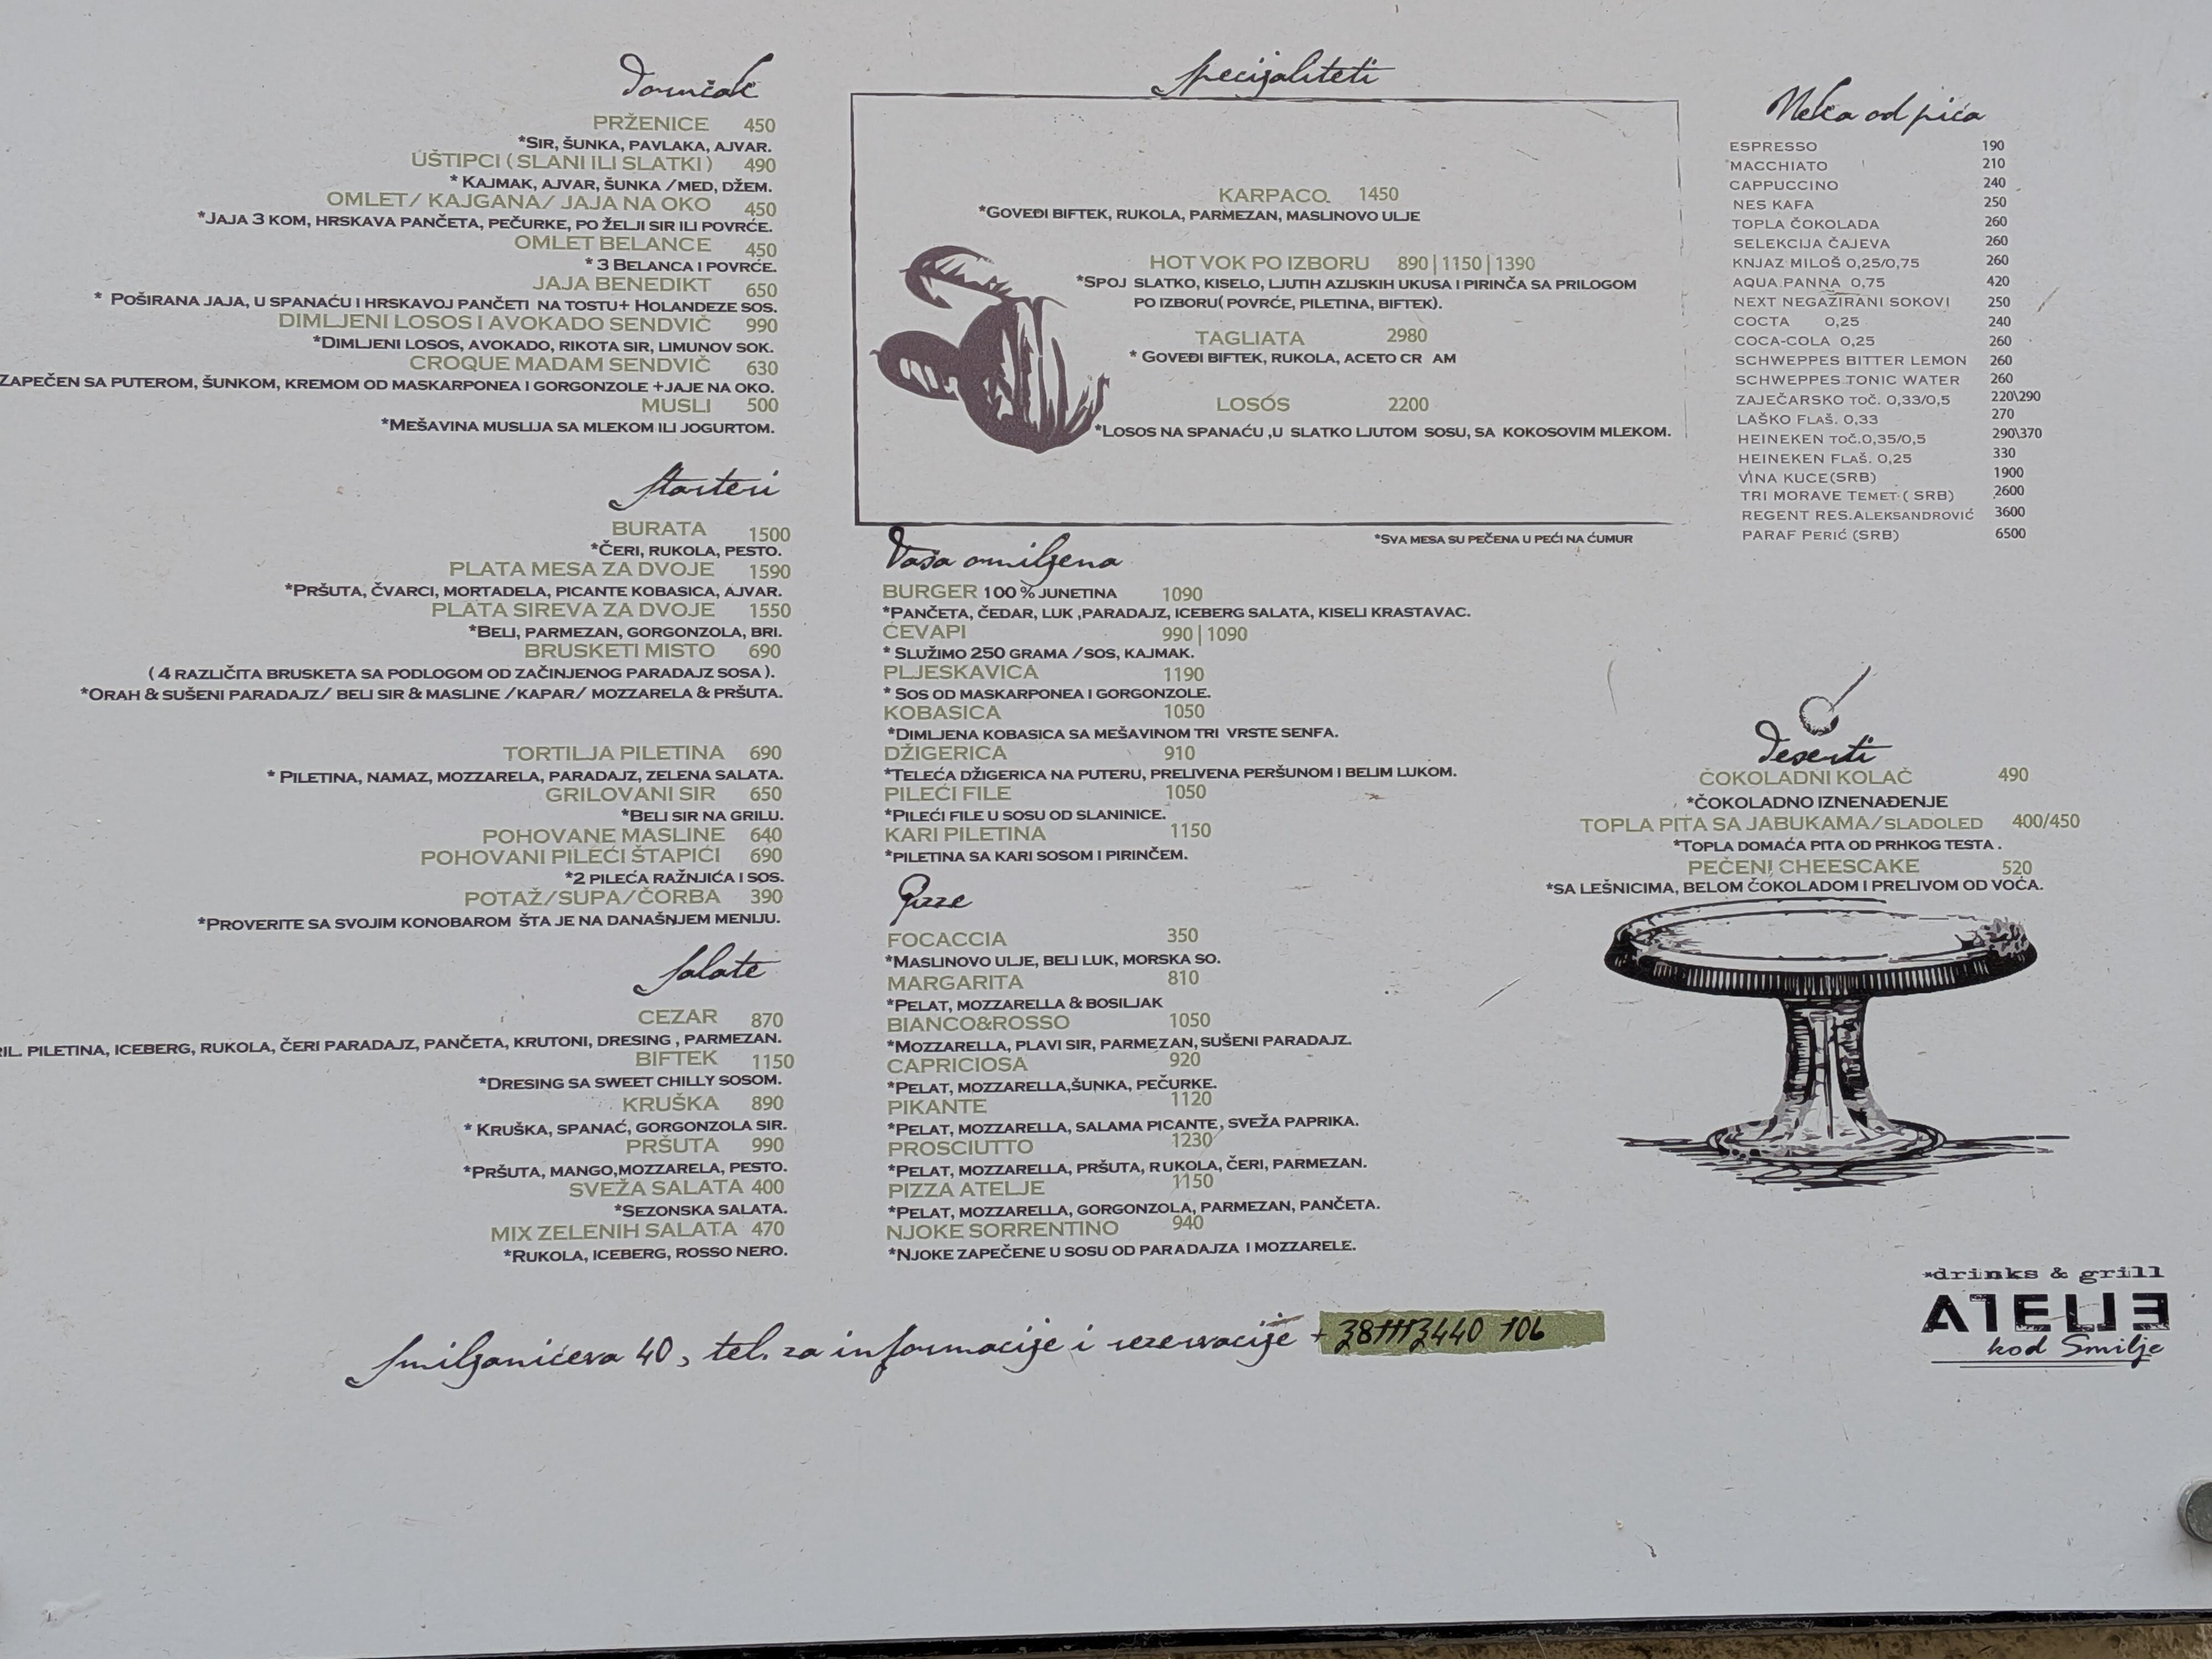 Doručak
PRŽENICE 450
*SIR, ŠUNKA, PAVLAKA, AJVAR.
UŠTIPCI ( SLANI ILI SLATKI ) 490
* KAJMAK, AJVAR, ŠUNKA /MED, DŽEM.
OMLET/ KAJGANA/ JAJA NA OKO 450
*JAJA 3 KOM, HRSKAVA PANČETA, PEČURKE, PO ŽELJI SIR ILI POVRĆE.
OMLET BELANCE 450
* 3 BELANCA I POVRĆE.
JAJA BENEDIKT 650
* POŠIRANA JAJA, U SPANAĆU I HRSKAVOJ PANČETI NA TOSTU+ HOLANDEZE SOS.
DIMLJENI LOSOS I AVOKADO SENDVIČ 990
*DIMLJENI LOSOS, AVOKADO, RIKOTA SIR, LIMUNOV SOK.
CROQUE MADAM SENDVIČ 630
ZAPEČEN SA PUTEROM, ŠUNKOM, KREMOM OD MASKARPONEA I GORGONZOLE +JAJE NA OKO.
MUSLI 500
*MEŠAVINA MUSLIJA SA MLEKOM ILI JOGURTOM.
Starteri
BURATA 1500
*ČERI, RUKOLA, PESTO.
PLATA MESA ZA DVOJE 1590
*PRŠUTA, ČVARCI, MORTADELA, PICANTE KOBASICA, AJVAR.
PLATA SIREVA ZA DVOJE 1550
*BELI, PARMEZAN, GORGONZOLA, BRI.
BRUSKETI MISTO 690
( 4 RAZLIČITA BRUSKETA SA PODLOGOM OD ZAČINJENOG PARADAJZ SOSA ).
*ORAH & SUŠENI PARADAJZ/ BELI SIR & MASLINE /KAPAR/ MOZZARELA & PRŠUTA.
TORTILJA PILETINA 690
* PILETINA, NAMAZ, MOZZARELA, PARADAJZ, ZELENA SALATA.
GRILOVANI SIR 650
*BELI SIR NA GRILU.
POHOVANE MASLINE 640
POHOVANI PILEĆI ŠTAPIĆI 690
*2 PILEĆA RAŽNJIĆA I SOS.
POTAŽ/SUPA/ČORBA 390
*PROVERITE SA SVOJIM KONOBAROM ŠTA JE NA DANAŠNJEM MENIJU.
Salate
CEZAR 870
RIL. PILETINA, ICEBERG, RUKOLA, ČERI PARADAJZ, PANČETA, KRUTONI, DRESING , PARMEZAN.
BIFTEK 1150
*DRESING SA SWEET CHILLY SOSOM.
KRUŠKA 890
* KRUŠKA, SPANAĆ, GORGONZOLA SIR.
PRŠUTA 990
*PRŠUTA, MANGO,MOZZARELA, PESTO.
SVEŽA SALATA 400
*SEZONSKA SALATA.
MIX ZELENIH SALATA 470
*RUKOLA, ICEBERG, ROSSO NERO.
Specijaliteti
KARPACO 1450
*GOVEĐI BIFTEK, RUKOLA, PARMEZAN, MASLINOVO ULJE
HOT VOK PO IZBORU 890 | 1150 | 1390
*SPOJ SLATKO, KISELO, LJUTIH AZIJSKIH UKUSA I PIRINČA SA PRILOGOM
PO IZBORU( POVRĆE, PILETINA, BIFTEK).
TAGLIATA 2980
* GOVEĐI BIFTEK, RUKOLA, ACETO CR AM
LOSOS 2200
*LOSOS NA SPANAĆU ,U SLATKO LJUTOM SOSU, SA KOKOSOVIM MLEKOM.
*SVA MESA SU PEČENA U PEĆI NA ĆUMUR
Vaša omiljena
BURGER 100 % JUNETINA 1090
*PANČETA, ČEDAR, LUK ,PARADAJZ, ICEBERG SALATA, KISELI KRASTAVAC.
ĆEVAPI 990 | 1090
* SLUŽIMO 250 GRAMA /SOS, KAJMAK.
PLJESKAVICA 1190
* SOS OD MASKARPONEA I GORGONZOLE.
KOBASICA 1050
*DIMLJENA KOBASICA SA MEŠAVINOM TRI VRSTE SENFA.
DŽIGERICA 910
*TELEĆA DŽIGERICA NA PUTERU, PRELIVENA PERŠUNOM I BELIM LUKOM.
PILEĆI FILE 1050
*PILEĆI FILE U SOSU OD SLANINICE.
KARI PILETINA 1150
*PILETINA SA KARI SOSOM I PIRINČEM.
Pizze
FOCACCIA 350
*MASLINOVO ULJE, BELI LUK, MORSKA SO.
MARGARITA 810
*PELAT, MOZZARELLA & BOSILJAK
BIANCO&ROSSO 1050
*MOZZARELLA, PLAVI SIR, PARMEZAN, SUŠENI PARADAJZ.
CAPRICIOSA 920
*PELAT, MOZZARELLA,ŠUNKA, PEČURKE.
PIKANTE 1120
*PELAT, MOZZARELLA, SALAMA PICANTE, SVEŽA PAPRIKA.
PROSCIUTTO 1230
*PELAT, MOZZARELLA, PRŠUTA, RUKOLA, ČERI, PARMEZAN.
PIZZA ATELJE 1150
*PELAT, MOZZARELLA, GORGONZOLA, PARMEZAN, PANČETA.
NJOKE SORRENTINO 940
*NJOKE ZAPEČENE U SOSU OD PARADAJZA I MOZZARELE.
Neka od pića
ESPRESSO 190
MACCHIATO 210
CAPPUCCINO 240
NES KAFA 250
TOPLA ČOKOLADA 260
SELEKCIJA ČAJEVA 260
KNJAZ MILOŠ 0,25/0,75 260
AQUA PANNA 0,75 420
NEXT NEGAZIRANI SOKOVI 250
COCTA 0,25 240
COCA-COLA 0,25 260
SCHWEPPES BITTER LEMON 260
SCHWEPPES TONIC WATER 260
ZAJEČARSKO TOČ. 0,33/0,5 220\290
LAŠKO FLAŠ. 0,33 270
HEINEKEN TOČ.0,35/0,5 290\370
HEINEKEN FLAŠ. 0,25 330
VINA KUCE(SRB) 1900
TRI MORAVE TEMET ( SRB) 2600
REGENT RES.ALEKSANDROVIĆ 3600
PARAF PERIĆ (SRB) 6500
Deserti
ČOKOLADNI KOLAČ 490
*ČOKOLADNO IZNENAĐENJE
TOPLA PITA SA JABUKAMA/SLADOLED 400/450
*TOPLA DOMAĆA PITA OD PRHKOG TESTA .
PEČENI CHEESCAKE 520
*SA LEŠNICIMA, BELOM ČOKOLADOM I PRELIVOM OD VOĆA.
*drinks & grill
ATELJE
kod Smilje
Smiljanićeva 40, tel. za informacije i rezervacije + 381113440 106